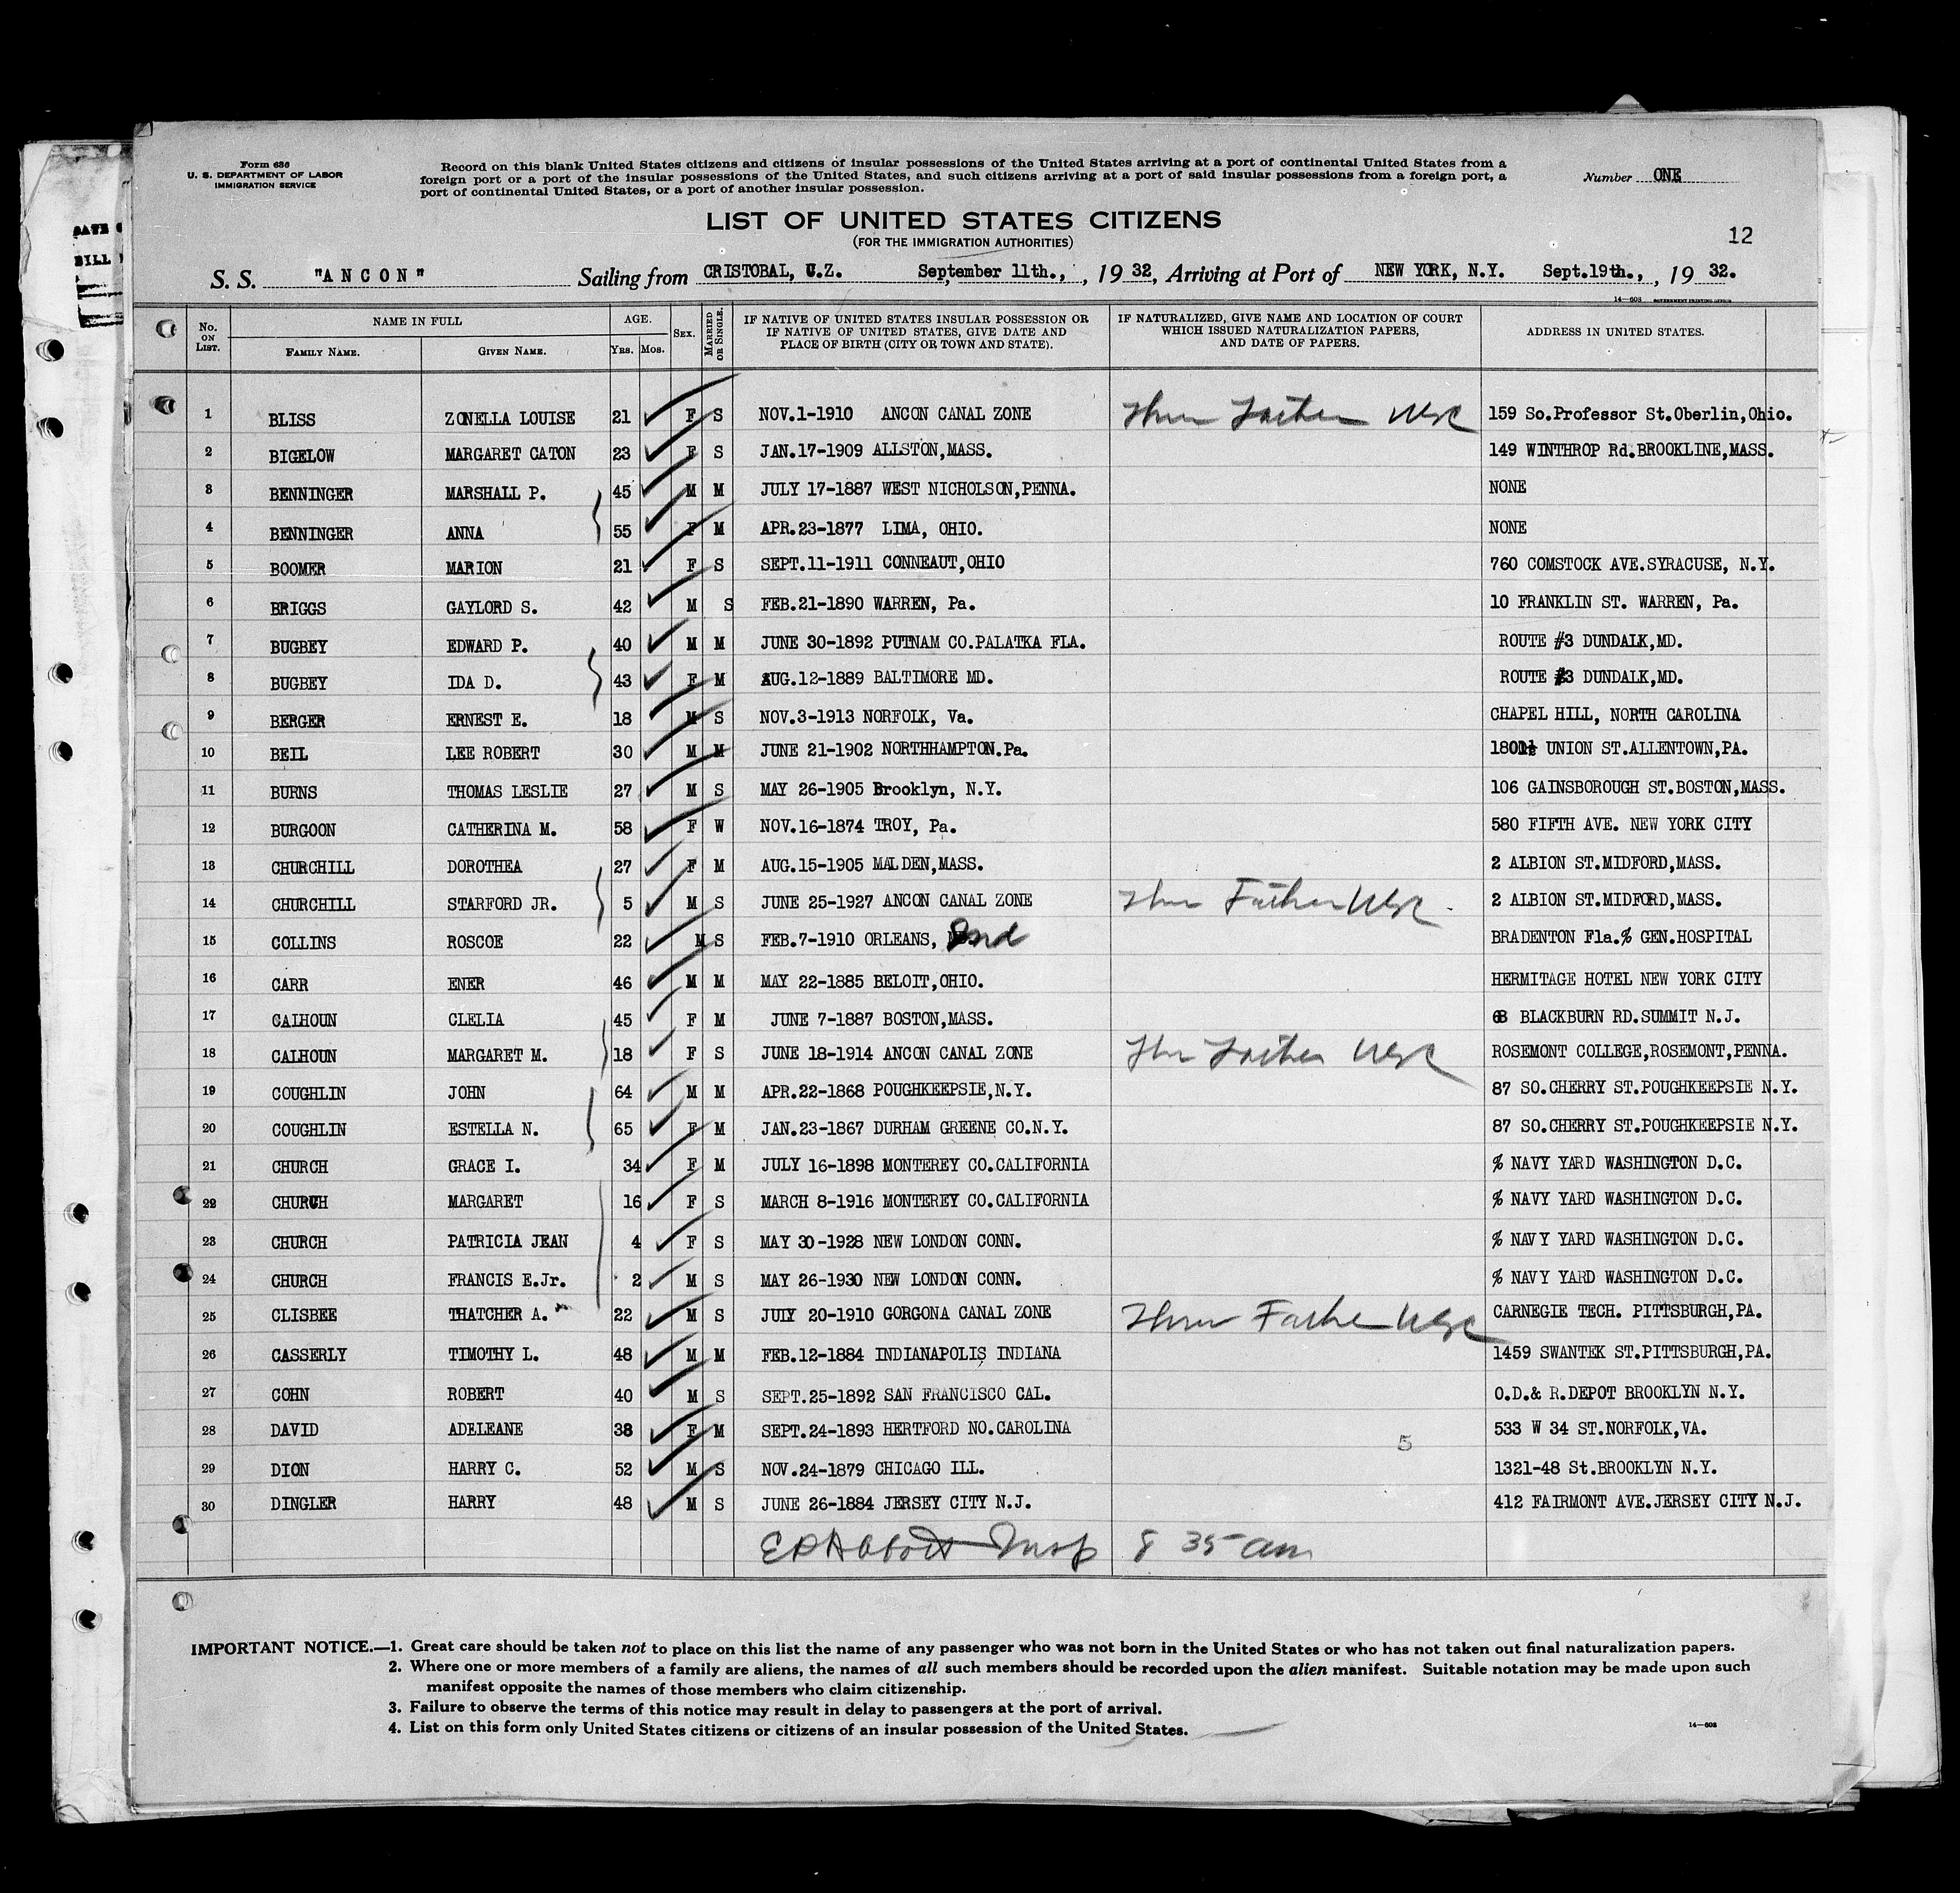 Form 686
U. S. DEPARTMENT OF LABOR
IMMIGRATION SERVICE
Record on this blank United States citizens and citizens of insular possessions of the United States arriving at a port of continental United States from a
foreign port or a port of the insular possessions of the United States, and such citizens arriving at a port of said insular possessions from a foreign port, a
port of continental United States, or a port of another insular possession.
Number ONE
LIST OF UNITED STATES CITIZENS
(FOR THE IMMIGRATION AUTHORITIES)
12
S. S. "ANCON" Sailing from CRISTOBAL, C.Z. September 11th., , 19 32, Arriving at Port of NEW YORK, N.Y. Sept.19th., , 19 32.
14—608 GOVERNMENT PRINTING OFFICE
No. ON LIST. NAME IN FULL FAMILY NAME. GIVEN NAME. AGE. YRS. MOS. SEX. MARRIED OR SINGLE. IF NATIVE OF UNITED STATES INSULAR POSSESSION OR IF NATIVE OF UNITED STATES, GIVE DATE AND PLACE OF BIRTH (CITY OR TOWN AND STATE). IF NATURALIZED, GIVE NAME AND LOCATION OF COURT WHICH ISSUED NATURALIZATION PAPERS, AND DATE OF PAPERS. ADDRESS IN UNITED STATES.
1 BLISS ZONELLA LOUISE 21 F S NOV.1-1910 ANCON CANAL ZONE Thru Father USC 159 So.Professor St.Oberlin,Ohio.
2 BIGELOW MARGARET CATON 23 F S JAN.17-1909 ALLSTON,MASS. 149 WINTHROP Rd.BROOKLINE,MASS.
3 BENNINGER MARSHALL P. 45 M M JULY 17-1887 WEST NICHOLSON,PENNA. NONE
4 BENNINGER ANNA 55 F M APR.23-1877 LIMA, OHIO. NONE
5 BOOMER MARION 21 F S SEPT.11-1911 CONNEAUT,OHIO 760 COMSTOCK AVE.SYRACUSE, N.Y.
6 BRIGGS GAYLORD S. 42 M S FEB.21-1890 WARREN, Pa. 10 FRANKLIN ST. WARREN, Pa.
7 BUGBEY EDWARD P. 40 M M JUNE 30-1892 PUTNAM CO.PALATKA FLA. ROUTE #3 DUNDALK,MD.
8 BUGBEY IDA D. 43 F M AUG.12-1889 BALTIMORE MD. ROUTE #3 DUNDALK,MD.
9 BERGER ERNEST E. 18 M S NOV.3-1913 NORFOLK, Va. CHAPEL HILL, NORTH CAROLINA
10 BEIL LEE ROBERT 30 M M JUNE 21-1902 NORTHHAMPTON.Pa. 1801½ UNION ST.ALLENTOWN,PA.
11 BURNS THOMAS LESLIE 27 M S MAY 26-1905 Brooklyn, N.Y. 106 GAINSBOROUGH ST.BOSTON,MASS.
12 BURGOON CATHERINA M. 58 F W NOV.16-1874 TROY, Pa. 580 FIFTH AVE. NEW YORK CITY
13 CHURCHILL DOROTHEA 27 F M AUG.15-1905 MALDEN,MASS. 2 ALBION ST.MIDFORD,MASS.
14 CHURCHILL STARFORD JR. 5 M S JUNE 25-1927 ANCON CANAL ZONE Thru Father USC 2 ALBION ST.MIDFORD,MASS.
15 COLLINS ROSCOE 22 M S FEB.7-1910 ORLEANS, Ind BRADENTON Fla.% GEN.HOSPITAL
16 CARR ENER 46 M M MAY 22-1885 BELOIT,OHIO. HERMITAGE HOTEL NEW YORK CITY
17 CALHOUN CLELIA 45 F M JUNE 7-1887 BOSTON,MASS. 68 BLACKBURN RD.SUMMIT N.J.
18 CALHOUN MARGARET M. 18 F S JUNE 18-1914 ANCON CANAL ZONE Thru Father USC ROSEMONT COLLEGE,ROSEMONT,PENNA.
19 COUGHLIN JOHN 64 M M APR.22-1868 POUGHKEEPSIE,N.Y. 87 SO.CHERRY ST.POUGHKEEPSIE N.Y.
20 COUGHLIN ESTELLA N. 65 F M JAN.23-1867 DURHAM GREENE CO.N.Y. 87 SO.CHERRY ST.POUGHKEEPSIE N.Y.
21 CHURCH GRACE I. 34 F M JULY 16-1898 MONTEREY CO.CALIFORNIA % NAVY YARD WASHINGTON D.C.
22 CHURCH MARGARET 16 F S MARCH 8-1916 MONTEREY CO.CALIFORNIA % NAVY YARD WASHINGTON D.C.
23 CHURCH PATRICIA JEAN 4 F S MAY 30-1928 NEW LONDON CONN. % NAVY YARD WASHINGTON D.C.
24 CHURCH FRANCIS E.Jr. 2 M S MAY 26-1930 NEW LONDON CONN. % NAVY YARD WASHINGTON D.C.
25 CLISBEE THATCHER A. 22 M S JULY 20-1910 GORGONA CANAL ZONE Thru Father USC CARNEGIE TECH. PITTSBURGH,PA.
26 CASSERLY TIMOTHY L. 48 M M FEB.12-1884 INDIANAPOLIS INDIANA 1459 SWANTEK ST.PITTSBURGH,PA.
27 COHN ROBERT 40 M S SEPT.25-1892 SAN FRANCISCO CAL. O.D.& R.DEPOT BROOKLYN N.Y.
28 DAVID ADELEANE 38 F M SEPT.24-1893 HERTFORD NO.CAROLINA 533 W 34 ST.NORFOLK,VA.
5
29 DION HARRY C. 52 M S NOV.24-1879 CHICAGO ILL. 1321-48 St.BROOKLYN N.Y.
30 DINGLER HARRY 48 M S JUNE 26-1884 JERSEY CITY N.J. 412 FAIRMONT AVE.JERSEY CITY N.J.
Insp 8 35 am
IMPORTANT NOTICE.—1. Great care should be taken not to place on this list the name of any passenger who was not born in the United States or who has not taken out final naturalization papers.
2. Where one or more members of a family are aliens, the names of all such members should be recorded upon the alien manifest. Suitable notation may be made upon such
manifest opposite the names of those members who claim citizenship.
3. Failure to observe the terms of this notice may result in delay to passengers at the port of arrival.
4. List on this form only United States citizens or citizens of an insular possession of the United States.
14—608